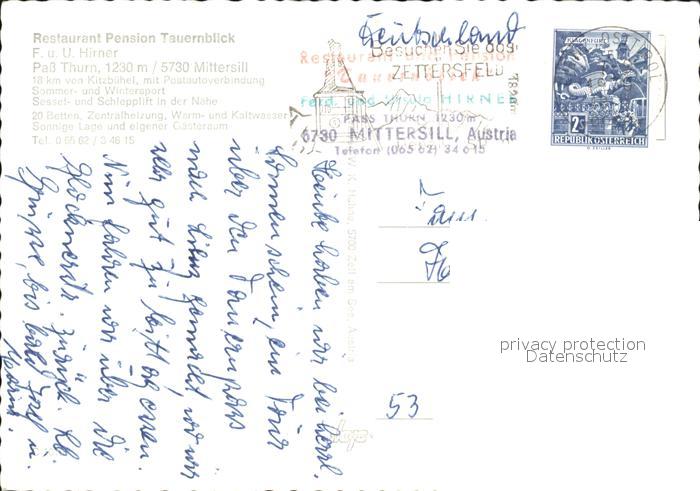 Restaurant Pension Tauernblick
F. u. U. Hirner
Paß Thurn, 1230 m / 5730 Mittersill
18 km von Kitzbühel, mit Postautoverbindung
Sommer- und Wintersport
Sessel- und Schlepplift in der Nähe
20 Betten, Zentralheizung, Warm- und Kaltwasser
Sonnige Lage und eigener Gästeraum
Tel. 0 65 62 / 3 46 15
Deutschland
Besuchen Sie das
ZETTERSFELD
1820 m
Ferd. und HIRNER
PASS THURN 1230 m
5730 MITTERSILL, Austria
Telefon (065 62) 34 6 15
KLAGENFURT
2 S
REPUBLIK ÖSTERREICH
Heute haben wir bei herrl.
Sonnenschein, eine Tour
über den Tauernpass
nach gemacht, wo wir
sehr gut zu Mittag essen.
Nun fahren wir über die
Glocknerstr. zurück. Hb.
Grüsse, bis bald Josef u.
5700 Zell am See, Austria
Fam.
53
privacy protection
Datenschutz